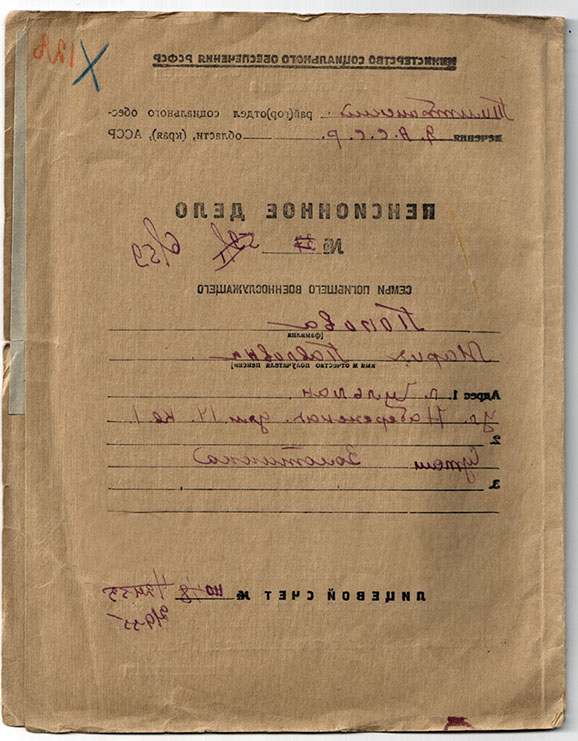 МИНИСТЕРСТВО СОЦИАЛЬНОГО ОБЕСПЕЧЕНИЯ РСФСР
рай(гор)отдел социального обес-
печения Я.А.С.С.Р. области, (края), АССР
ПЕНСИОННОЕ ДЕЛО
№ 6/59
СЕМЬИ ПОГИБШЕГО ВОЕННОСЛУЖАЩЕГО
Попова
(фамилия)
Мария Павловна
имя и отчество получателя пенсии)
Адрес 1 п. Чульман
ул. Набережная дом 14. кв. 1
2.
Золотинка
3.
ЛИЦЕВОЙ СЧЕТ №